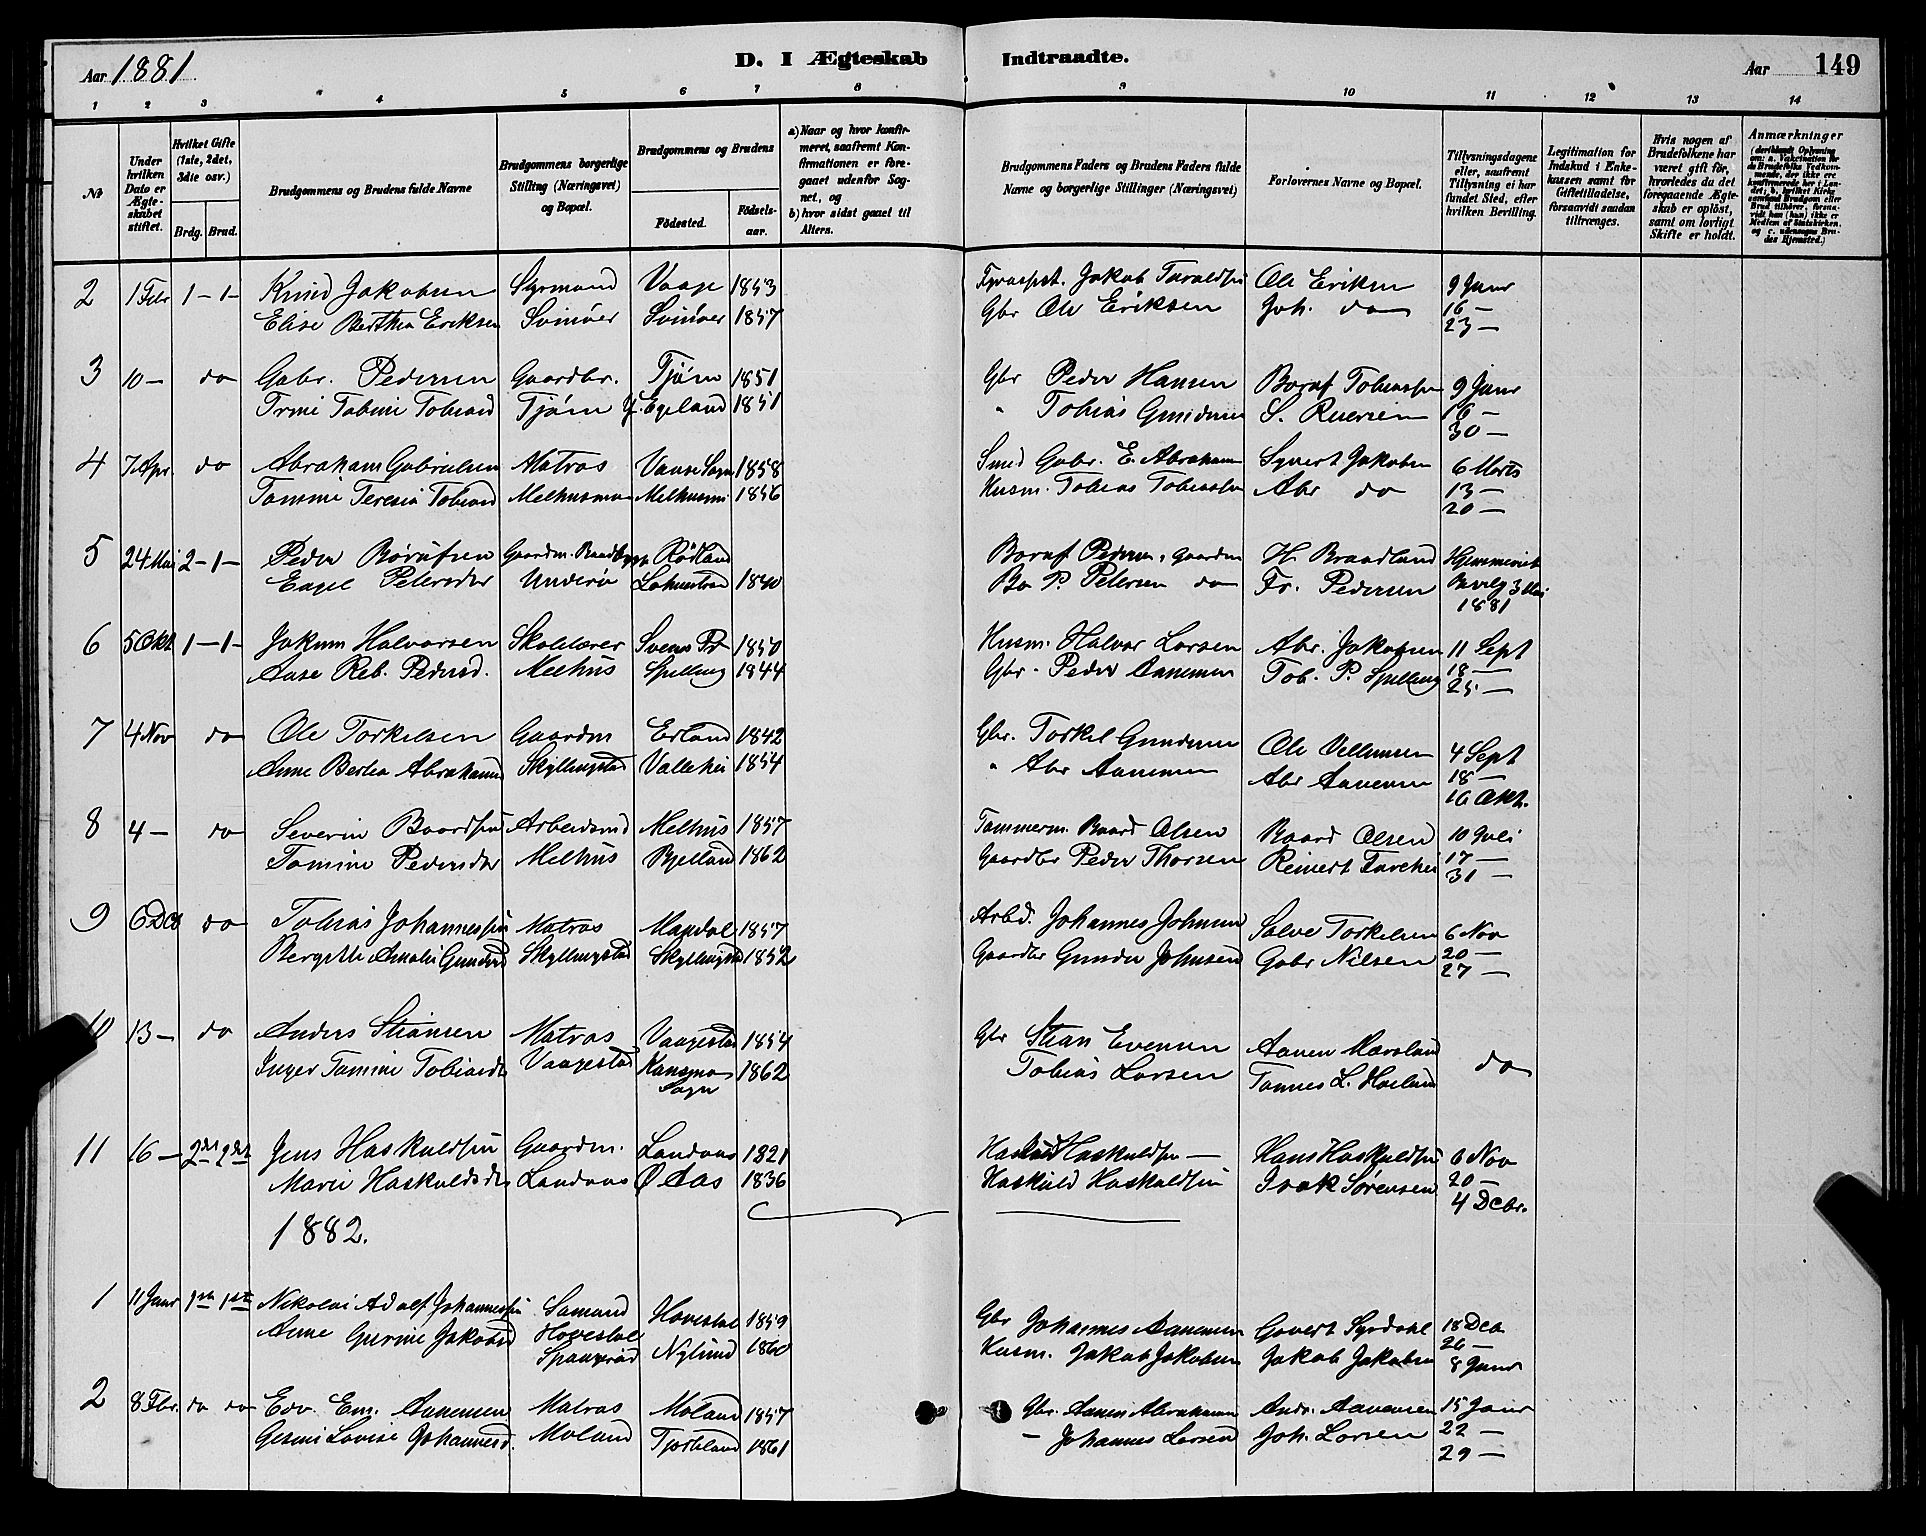 Aar 1881
D. I Ægteskab Indtraadte.
Aar 149
1 2 3 4 5 6 7 8 9 10 11 12 13 14
№
Under hvilken Dato er Ægteskabet stiftet.
Hvilket Gifte (1ste, 2det, 3die osv.)
Brdg. Brud.
Brudgommens og Brudens fulde Navne
Brudgommens borgerlige Stilling (Næringsvei) og Bopæl.
Brudgommens og Brudens
Fødested.
Fødselsaar.
a) Naar og hvor konfirmeret, saafremt Konfirmationen er foregaaet udenfor Sognet, og
b) hvor sidst gaaet til Alters.
Brudgommens Faders og Brudens Faders fulde Navne og borgerlige Stillinger (Næringsvei)
Forlovernes Navne og Bopæl.
Tillysningsdagene eller, saafremt Tillysning ei har fundet Sted, efter hvilken Bevilling.
Legitimation for Indskud i Enkekassen samt for Giftetilladelse, forsaavidt saadan tiltrænges.
Hvis nogen af Brudefolkene har været gift før, hvorledes da det foregaaende Ægteskab er opløst, samt om lovligt Skifte er holdt.
Anmærkninger
2 1 Febr 1-1- Knud Jakobsen Styrmand Vaage 1853 Jakob Taraldsen Ole Eriksen 9 Janr
Elise Berthea Eriksen Svinöer Svinöer 1857 Gbr Ole Eriksen Joh. do 16 -
23 -
3 10 - do Gabr. Pedersen Gaardbr. Tjöm 1851 Gbr Peder Hansen Boruf Tobiassen 9 Janr
Trine Tobine Tobiasd Tjöm Egeland 1851 " Tobias Gundersen S. Reiersen 16 -
30 -
4 7 Apr. do Abraham Gabrielsen Matros Vanse Sogn 1858 Smed Gabr. E. Abrahamsen Syvert Jakobsen 6 Marts
Tammine Teresia Tobiasd Melhusmo Melhusmo 1856 Husm. Tobias Tobiassen Abr do 13 -
20 -
5 24 Mai 2-1- Peder Börufsen Gaardm. Rödland Boruf Pedersen, Gaardm H. Braadland Hjemmeviet
Engel Petersdr Underö 1840 Bo P. Petersen do Fr. Pedersen Bevilg 3 Mai
1881
6 5 Okt 1-1- Jakum Halvorsen Skolelærer 1850 Husm. Halvor Larsen Abr. Jakobsen 11 Sept
Aase Reb. Pedersd. Melhus Spilling 1844 Gbr - Peder Aanensen Tob. P. Spilling 18 -
25 -
7 4 Nov do Ole Torkelsen Gaardm Erland 1842 Gbr. Torkel Gundersen Ole Villumsen 4 Sept
Anne Bertea Abrahamsd Skyllingstad 1854 " Abr Aanensen Abr Aanensen 18 -
16 Okt.
8 4 - do Severin Baardsen Arbeidsmd Melhus 1857 Tømmerm. Baard Olsen Baard Olsen 10 Juli
Tomine Pedersdtr Melhus Bjelland 1862 Gaardbr Peder Thorsen Reinert 17 -
31 -
9 6 Dcb do Tobias Johannessen Matros Mandal 1857 Arbd. Johannes Johnsen Salve Torkelsen 6 Nov
Bergitte Amalie Gundersd Skyllingstad Skyllingstad 1852 Gaardbr Gunder Johnsen Gabr Nilsen 20 -
27 -
10 13 - do Anders Stiansen Matros Vaagestad 1854 Gbr Stian Evensen Aanen Mæsland
Inger Tomine Tobiasdtr Vaagestad Sogn 1862 Tobias Larsen Tønnes L. do
11 16 - 2det 2det Jens Haskuldsen Gaardm. Landaas 1821 Haskuldsen Hans Haskuldsen 6 Nov
Marie Haskuldsdtr Landaas Ø Aas 1836 Haskuld Haskuldsen Isak Sørensen 20 -
4 Dcbr.
1882.
1 11 Janr 1ste 1ste Nikolai Adolf Johannessen Sømand 1859 Gbr Johannes Aanensen Govert Syrdahl 18 Dcb
Anne Gurine Jakobsd Nylund 1860 Husm. Jakob Jakobsen Jakob Jakobsen 26 -
8 Janr
2 8 Fbr. do do Edv. Em. Aanensen Matros Moland 1857 Gbr. Aanen Abrahamsen Andr. Aanensen 15 Janr
Gesine Lovise Johannesd. Moland 1861 - Johannes Larsen Joh. Larsen 22 -
29 -